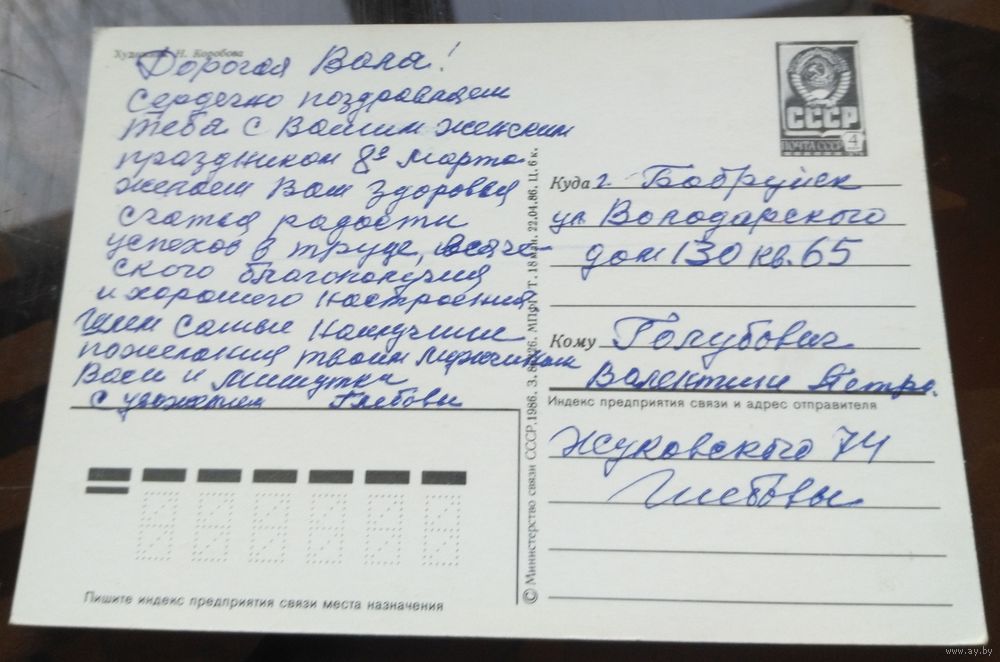 Художник Н. Коробова
Дорогая Валя!
Сердечно поздравляем
тебя с Вашим женским
праздником 8е Марта
желаем Вам здоровья
счастья радости
успехов в труде, всяче-
ского благополучия
и хорошего настроения
Шлем самые наилучшие
пожелания твоим мужчинам
Васи и Мишутки
С уважением Глебовы
СССР
ПОЧТА СССР
4
Куда г. Бобруйск
ул. Володарского
дом 130 кв. 65
Кому Голубович
Валентине Петро.
Индекс предприятия связи и адрес отправителя
Жуковского 74
Глебовы
Пишите индекс предприятия связи места назначения
© Министерство связи СССР, 1986. МПФГ. 22.04.86. Ц. 6 к.
www.ay.by